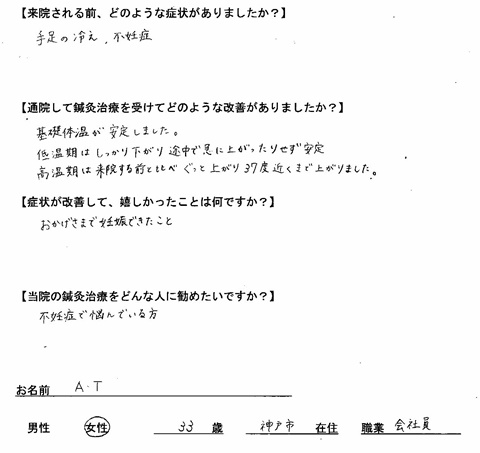 【来院される前、どのような症状がありましたか?】
手足の冷え、不妊症
【通院して鍼灸治療を受けてどのような改善がありましたか?】
基礎体温が安定しました。
低温期はしっかり下がり途中で急に上がったりせず安定
高温期は来院する前と比べぐっと上がり37度近くまで上がりました。
【症状が改善して、嬉しかったことは何ですか?】
おかげさまで妊娠できたこと
【当院の鍼灸治療をどんな人に勧めたいですか?】
不妊症で悩んでいる方
お名前 A・T
男性 女性 33 歳 神戸市 在住 職業 会社員